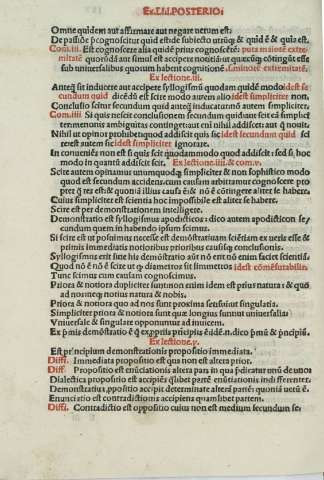 Ex.Li.I.POSTERIO:
Omne quidem aut affirmare aut negare verum est:
De passiōe p̄cognoscitur quid est de subiecto vtrūq̄ & quid ē & quia est.
Com.iii. Est cognoscere alia quidē prius cognoscētē: puta maiorē extremi
tatē quorūdā aut simul est accepere notitiā: ut quæcūq̄ cōtingūt esse
sub uniuersalibus quorum habent cognitionē .i. minorē extremitatē.
Ex lectione.iii.
Anteq̄ sit inducere aut accipere syllogismū quodam quidē modo idest se
cundum quid dicēdū est scire modo autem alio idest simpliciter non.
Conclusio scitur secundum quid anteq̄ inducatur non autem simpliciter.
Com.iiii Si quis nescit conclusionem secundum quid aut esse si a simplici
ter menonis ambiguitas continget: aut eni nihil addiscet: aut q̄ nouit.
Nihil ut opinor prohibet quod addiscit quis sic idest secundum quid sci
re est autem sic idest simpliciter ignorare.
In conueniēs non est si quis scit quodammodo quod addiscit: sed si hoc
modo in quantū addiscit scit. Ex lectione.iiii.& com.v.
Scire autem opinamur unumquodq̄ simpliciter & non sophistico modo
quod est secundum accidens. cum causam arbitramur cognoscere pro
pter q̄ res est: & quoniā illius causa ē: & nō ē cōtingere aliter se habere.
Cuius simpliciter est scientia hoc impossibile est aliter se habere.
Scire est per demonstrationem intelligere.
Demonstratio est syllogismus apodicticos: dico autem apodicticon se,
cundum quem in habendo ipsum scimus.
Si scire est ut posuimus necesse est demōstratiuam sciētiam ex ueris esse &
primis immediatis notioribus prioribus causisq̄ conclusionis.
Syllogismus erit sine his demōstratio aūt nō erit nō enim faciet scientiā.
Quod nō ē nō ē scire ut q̄ diameter sit simmetros idest cōmēsurabilis.
Tunc scimus cum causam cognoscimus.
Priora & notiora dupliciter sunt: non enim idem est prius natura & quo
ad nos: neq̄ notius natura & nobis.
Priora & notiora quo ad nos sunt proxima sensui ut singularia.
Simpliciter priora & notiora sunt quæ longius sunt ut uniuersalia:
Vniuersale & singulare opponuntur ad inuicem.
Ex p̄mis demōstratio ē q̄ ex p̄priis principiis ē idē.n. dico p̄mū & p̄ncipiū.
Ex lectione.v.
Est pr̄incipium demonstrationis propositio immediata.
Diffi. Immediata propositio est qua non est altera prior.
Diff. Propositio est enūciationis altera pars in qua p̄dicatur unū de uno:
Dialectica propositio est accipiēs q̄libet partē enūtiationis indifferenter.
Demonstratiua, p̄positio accipit determinate alterā partē: quoniā uerū ē.
Enunciatio est contradictionis accipiens quamlibet partem.
Diffi. Contradictio est oppositio cuius non est medium secundum se: